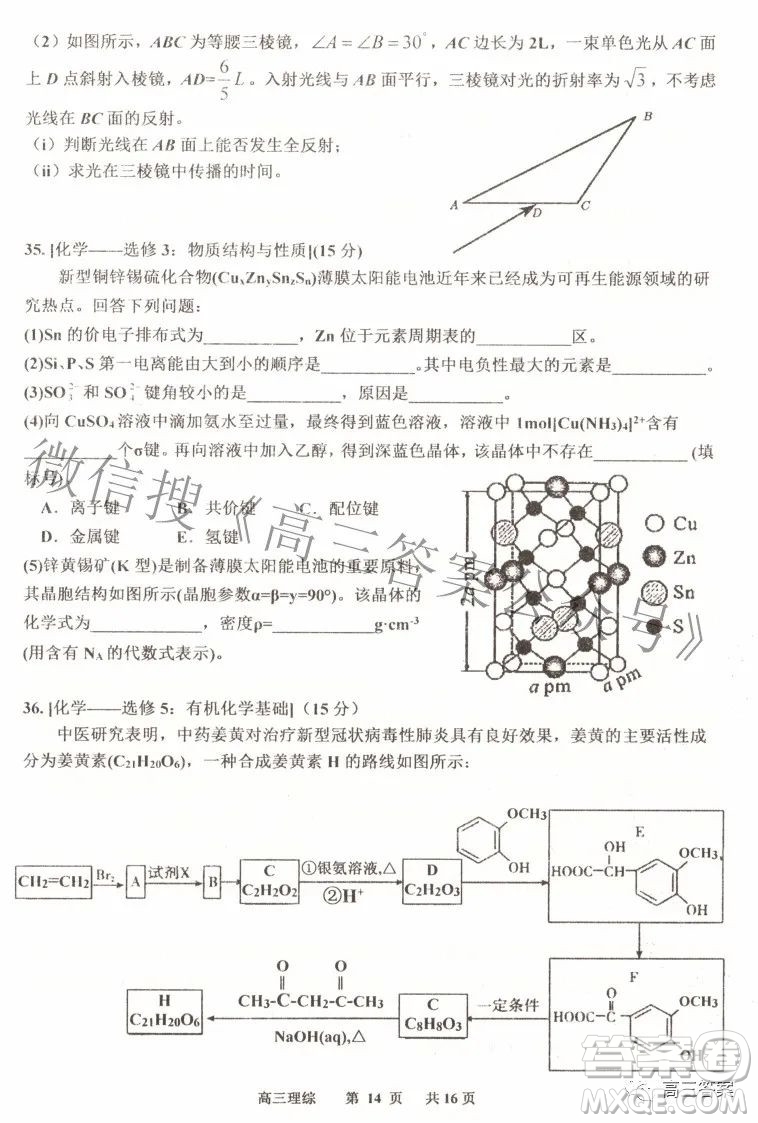 (2)如图所示,ABC为等腰三棱镜,∠A=∠B=30°,AC边长为2L,一束单色光从AC面
上D点斜射入棱镜,AD=6/5 L。入射光线与AB面平行,三棱镜对光的折射率为√3,不考虑
光线在BC面的反射。
(i)判断光线在AB面上能否发生全反射;
(ii)求光在三棱镜中传播的时间。
B
A
D
C
35.[化学——选修3:物质结构与性质](15分)
新型铜锌锡硫化合物(CuxZnySnzSn)薄膜太阳能电池近年来已经成为可再生能源领域的研
究热点。回答下列问题:
(1)Sn的价电子排布式为__________,Zn位于元素周期表的__________区。
(2)Si、P、S第一电离能由大到小的顺序是__________。其中电负性最大的元素是__________。
(3)SO₃²⁻和SO₄²⁻键角较小的是__________,原因是__________。
(4)向CuSO₄溶液中滴加氨水至过量,最终得到蓝色溶液,溶液中1mol[Cu(NH₃)₄]²⁺含有
__________个σ键。再向溶液中加入乙醇,得到深蓝色晶体,该晶体中不存在__________(填
标号)
A.离子键 B.共价键 C.配位键
D.金属键 E.氢键
(5)锌黄锡矿(K型)是制备薄膜太阳能电池的重要原料,
其晶胞结构如图所示(晶胞参数α=β=γ=90°)。该晶体的
化学式为__________,密度ρ=__________g·cm⁻³
(用含有NA的代数式表示)。
Cu
Zn
Sn
S
2a pm
a pm
a pm
36.[化学——选修5:有机化学基础](15分)
中医研究表明,中药姜黄对治疗新型冠状病毒性肺炎具有良好效果,姜黄的主要活性成
分为姜黄素(C₂₁H₂₀O₆),一种合成姜黄素H的路线如图所示:
CH₂=CH₂
Br₂
A
试剂X
B
C
C₂H₂O₂
①银氨溶液,△
②H⁺
D
C₂H₂O₃
OCH₃
OH
E
OH
HOOC
OCH₃
OH
F
O
HOOC-C
OCH₃
OH
一定条件
C
C₈H₈O₃
O O
CH₃-C-CH₂-C-CH₃
NaOH(aq),△
H
C₂₁H₂₀O₆
高三理综 第 14 页 共16页
微信搜《高三答案公众号》
高三答案
答案圈
MXQE.COM